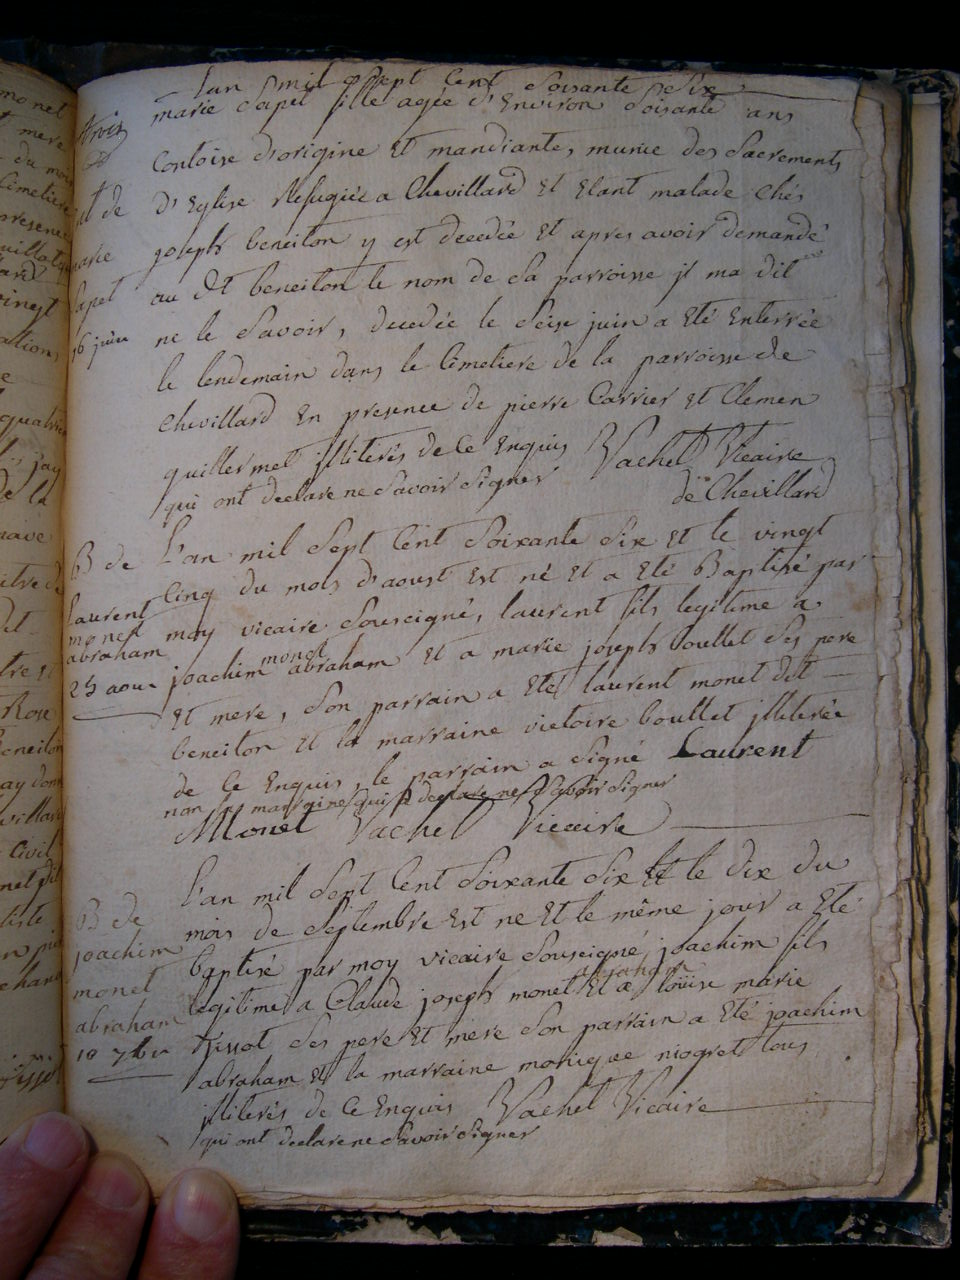 Lan mil Sept Cent Soixante Six
marie Sapet fille agée d'Environ Soisante ans
Contoise dorigine Et mandiante, munie des Sacrements
d'Eglise Refugiée a Chevillard Et Etant malade Chés
joseph beneiton y est decedée Et apres avoir demandé
au dt beneiton le nom de Sa parroisse jl ma dit
ne le Savoir, decedée le Seise juin a Eté Enterrée
le lendemain dans le Cimetiere de la parroisse de
Chevillard En presence de pierre Carrier Et Clemen
quillermet jlliterés de Ce Enquis Vachet Vicaire
qui ont declare ne Savoir Signer de Chevillard
de
marie
Sapet
16 juin
B de
Laurent
monet
abraham
25 aou
L'an mil Sept Cent Soixante Six Et le vingt
Cinq du mois d'aoust Est né Et a Eté Baptisé par
moy vicaire Sousigné, laurent fils legitime a
joachim monet abraham Et a marie joseph boullet Ses pere
Et mere, Son parrain a Eté laurent monet dit
beneiton Et la marraine victoire boullet jlliterée
de Ce Enquis, le parrain a Signé Laurent
non la marraine qui a declare ne Savoir Signer
Monet Vachet Vicaire
B de
joachim
monet
abraham
10 7bre
L'an mil Sept Cent Soixante Six Et le dix du
mois de Septembre Est ne Et le même jour a Eté
baptisé par moy vicaire Sousigné, joachim fils
legitime a Claude joseph monet abraham Et a loüise marie
tissot Ses pere Et mere Son parrain a Eté joachim
abraham Et la marraine monique niogret tous
jlliterés de Ce Enquis Vachet Vicaire
qui ont declare ne Savoir Signer